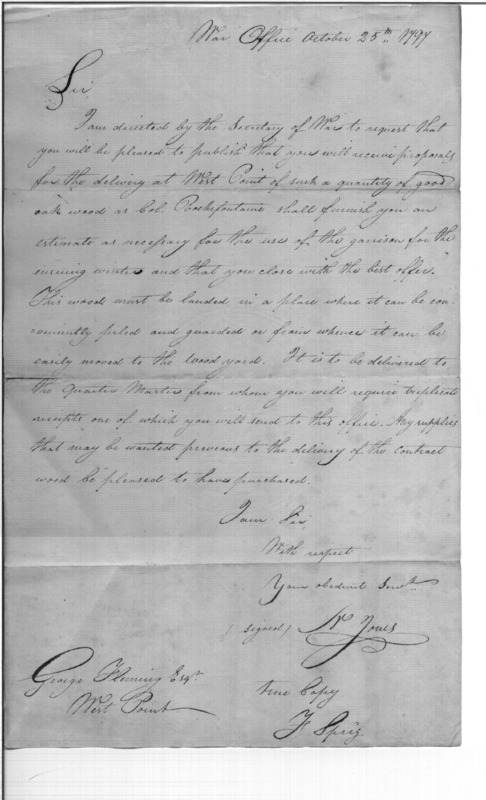 War Office October 25th 1797
Sir
I am directed by the Secretary of War to request that
you will be pleased to publish that you will receive proposals
for the delivery at West Point of such a quantity of good
oak wood as Col. Rochfontaine shall furnish you an
estimate as necessary for the use of the garrison for the
ensuing winter and that you close with the best offer.
This wood must be landed in a place where it can be con-
=veniently piled and guarded or from whence it can be
easily moved to the wood yard. It is to be delivered to
the Quarter Master from whom you will require triplicate
receipts one of which you will send to this office. Any supplies
that may be wanted previous to the delivery of the contract
wood be pleased to have purchased.
I am Sir
With respect
Your obedient Servt.
(signed) Wm Jones
George Fleming Esqr.
West Point
true Copy